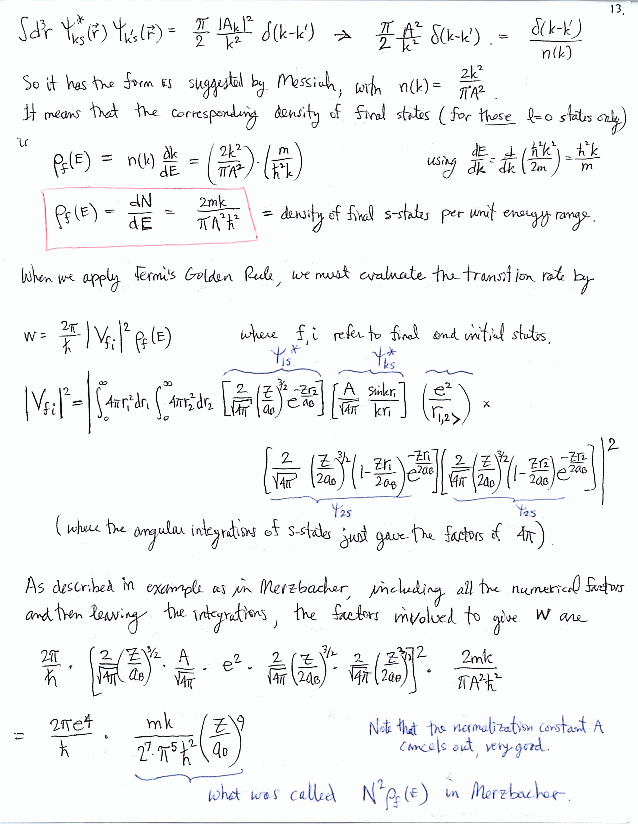 13.
∫d³r ψ*ₖₛ(r⃗) ψₖ'ₛ(r⃗) = π/2 |Aₖ|²/k² δ(k-k') → π/2 A²/k² δ(k-k') . = δ(k-k')/n(k)
So it has the form as suggested by Messiah, with n(k) = 2k²/πA² .
It means that the corresponding density of final states (for those l=0 states only)
is
ρ_f(E) = n(k) dk/dE = (2k²/πA²) · (m/ħ²k) using dE/dk = d/dk (ħ²k²/2m) = ħ²k/m
ρ_f(E) = dN/dE = 2mk/πA²ħ² = density of final s-states per unit energy range.
When we apply Fermi's Golden Rule, we must evaluate the transition rate by
w = 2π/ħ |V_fi|² ρ_f(E) where f, i refer to final and initial states.
ψ₁ₛ* ψₖₛ*
|V_fi|² = | ∫₀^∞ 4πr₁²dr₁ ∫₀^∞ 4πr₂²dr₂ [2/√4π (Z/a₀)^3/2 e^-Zr₂/a₀] [A/√4π sinkr₁/kr₁] (e²/r₁,₂>) ×
[2/√4π (Z/2a₀)^3/2 (1-Zr₁/2a₀) e^-Zr₁/2a₀] [2/√4π (Z/2a₀)^3/2 (1-Zr₂/2a₀) e^-Zr₂/2a₀] |²
ψ₂ₛ ψ₂ₛ
(where the angular integrations of s-states just gave the factors of 4π).
As described in example as in Merzbacher, including all the numerical factors
and then leaving the integrations, the factors involved to give W are
2π/ħ · [2/√4π (Z/a₀)^3/2 · A/√4π · e² · 2/√4π (Z/2a₀)^3/2 · 2/√4π (Z/2a₀)^3/2]² · 2mk/πA²ħ²
= 2πe⁴/ħ · mk/2⁷·π⁵ħ² (Z/a₀)⁹
Note that the normalization constant A
cancels out, very good.
what was called N²ρ_f(E) in Merzbacher.